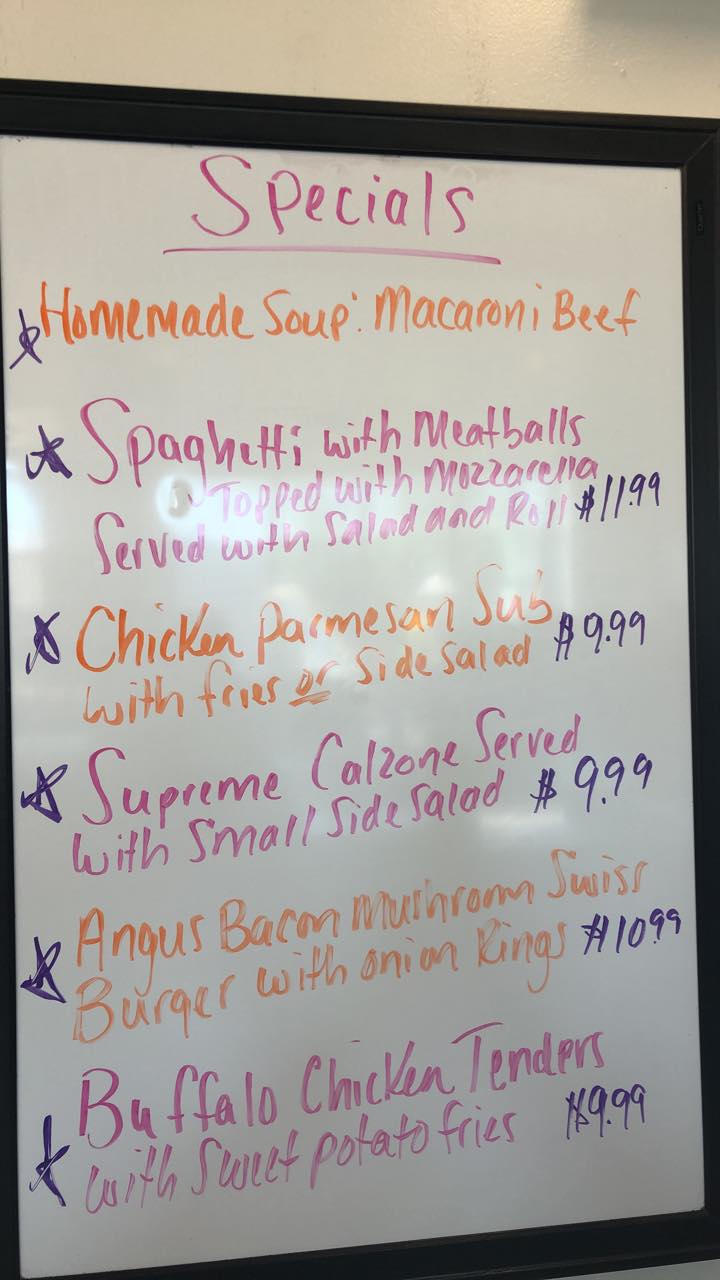 Specials
Homemade Soup: Macaroni Beef
Spaghetti with Meatballs
Topped with Mozzarella
Served with Salad and Roll $11.99
Chicken Parmesan Sub
with fries or Side Salad $9.99
Supreme Calzone Served
with Small Side Salad $9.99
Angus Bacon Mushroom Swiss
Burger with onion Rings $10.99
Buffalo Chicken Tenders
with Sweet potato fries $9.99